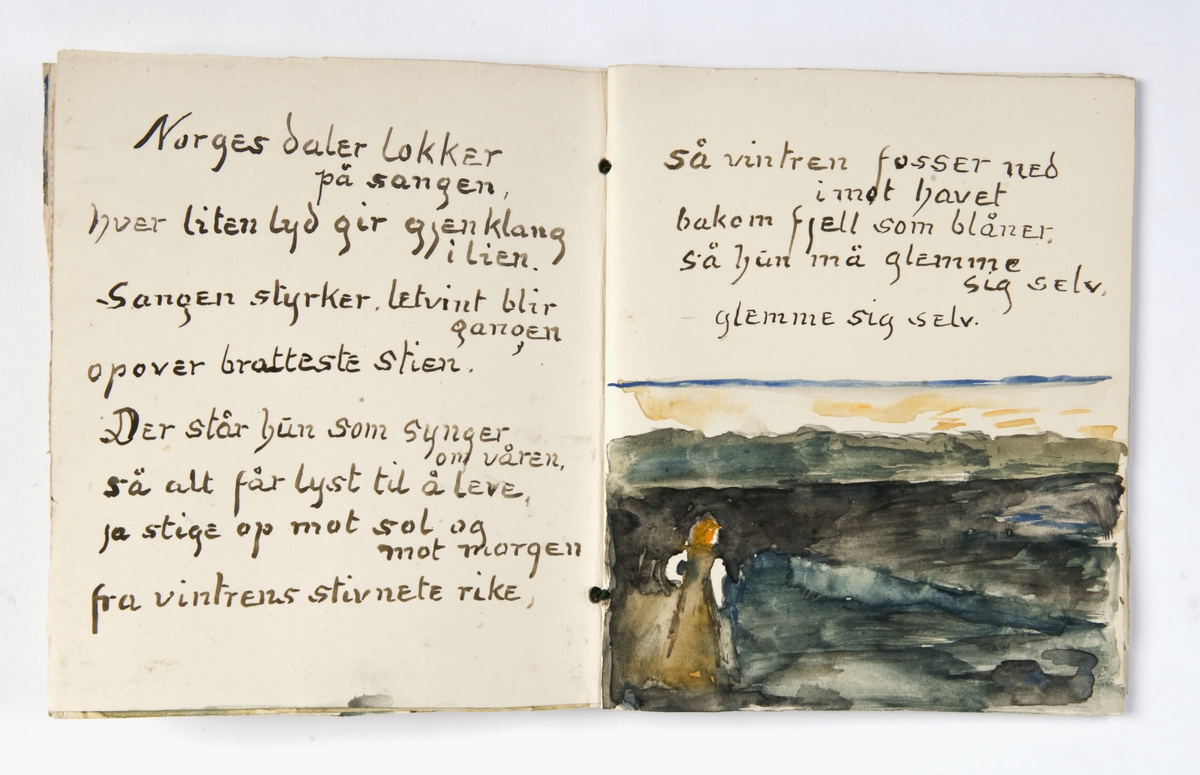 Norges daler lokker
på sangen,
hver liten lyd gir gjenklang
i lien.
Sangen styrker, letvint blir
gangen
opover bratteste stien.
Der står hun som synger
om våren,
så alt får lyst til å leve,
ja stige op mot sol og
mot morgen
fra vintrens stivnete rike,
så vintren fosser ned
imot havet
bakom fjell som blåner.
så hun må glemme
sig selv.
glemme sig selv.